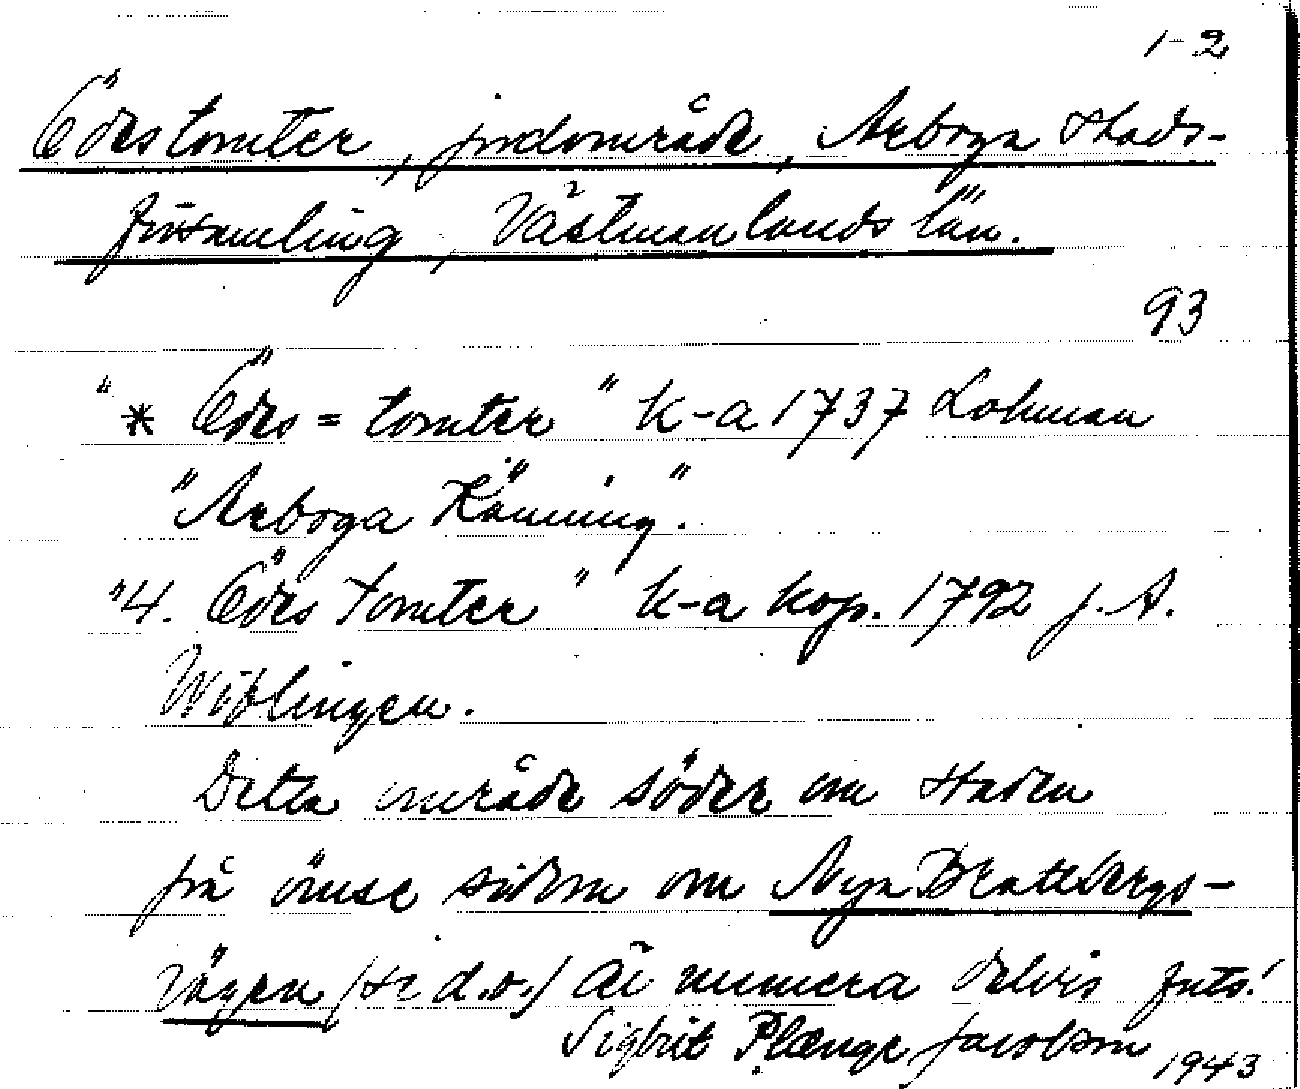 1-2
Ödestomter, jordområde, Arboga stads-
församling, Västmanlands län.
93
"* Ödes = tomter" k-a 1737 Lohman
"Arboga Känning".
"4. Ödes Tomter" k-a kop. 1792 J. A.
Wiblingen.
Detta område söder om staden
på ömse sidor om Nya Brattbergs-
vägen (se d.o.) är numera delvis
Sigbrit Plænge Jacobson 1943